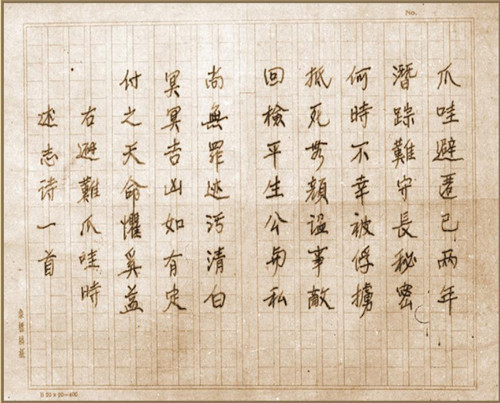 No.
爪哇避匿已兩年
潛踪難守長秘密
何時不幸被俘擄
抵死无顏諂事敵
回檢平生公與私
尚無罪迹污清白
冥冥吉凶如有定
付之天命懼奚益
右避難爪哇時
述志诗一首
20×20=400